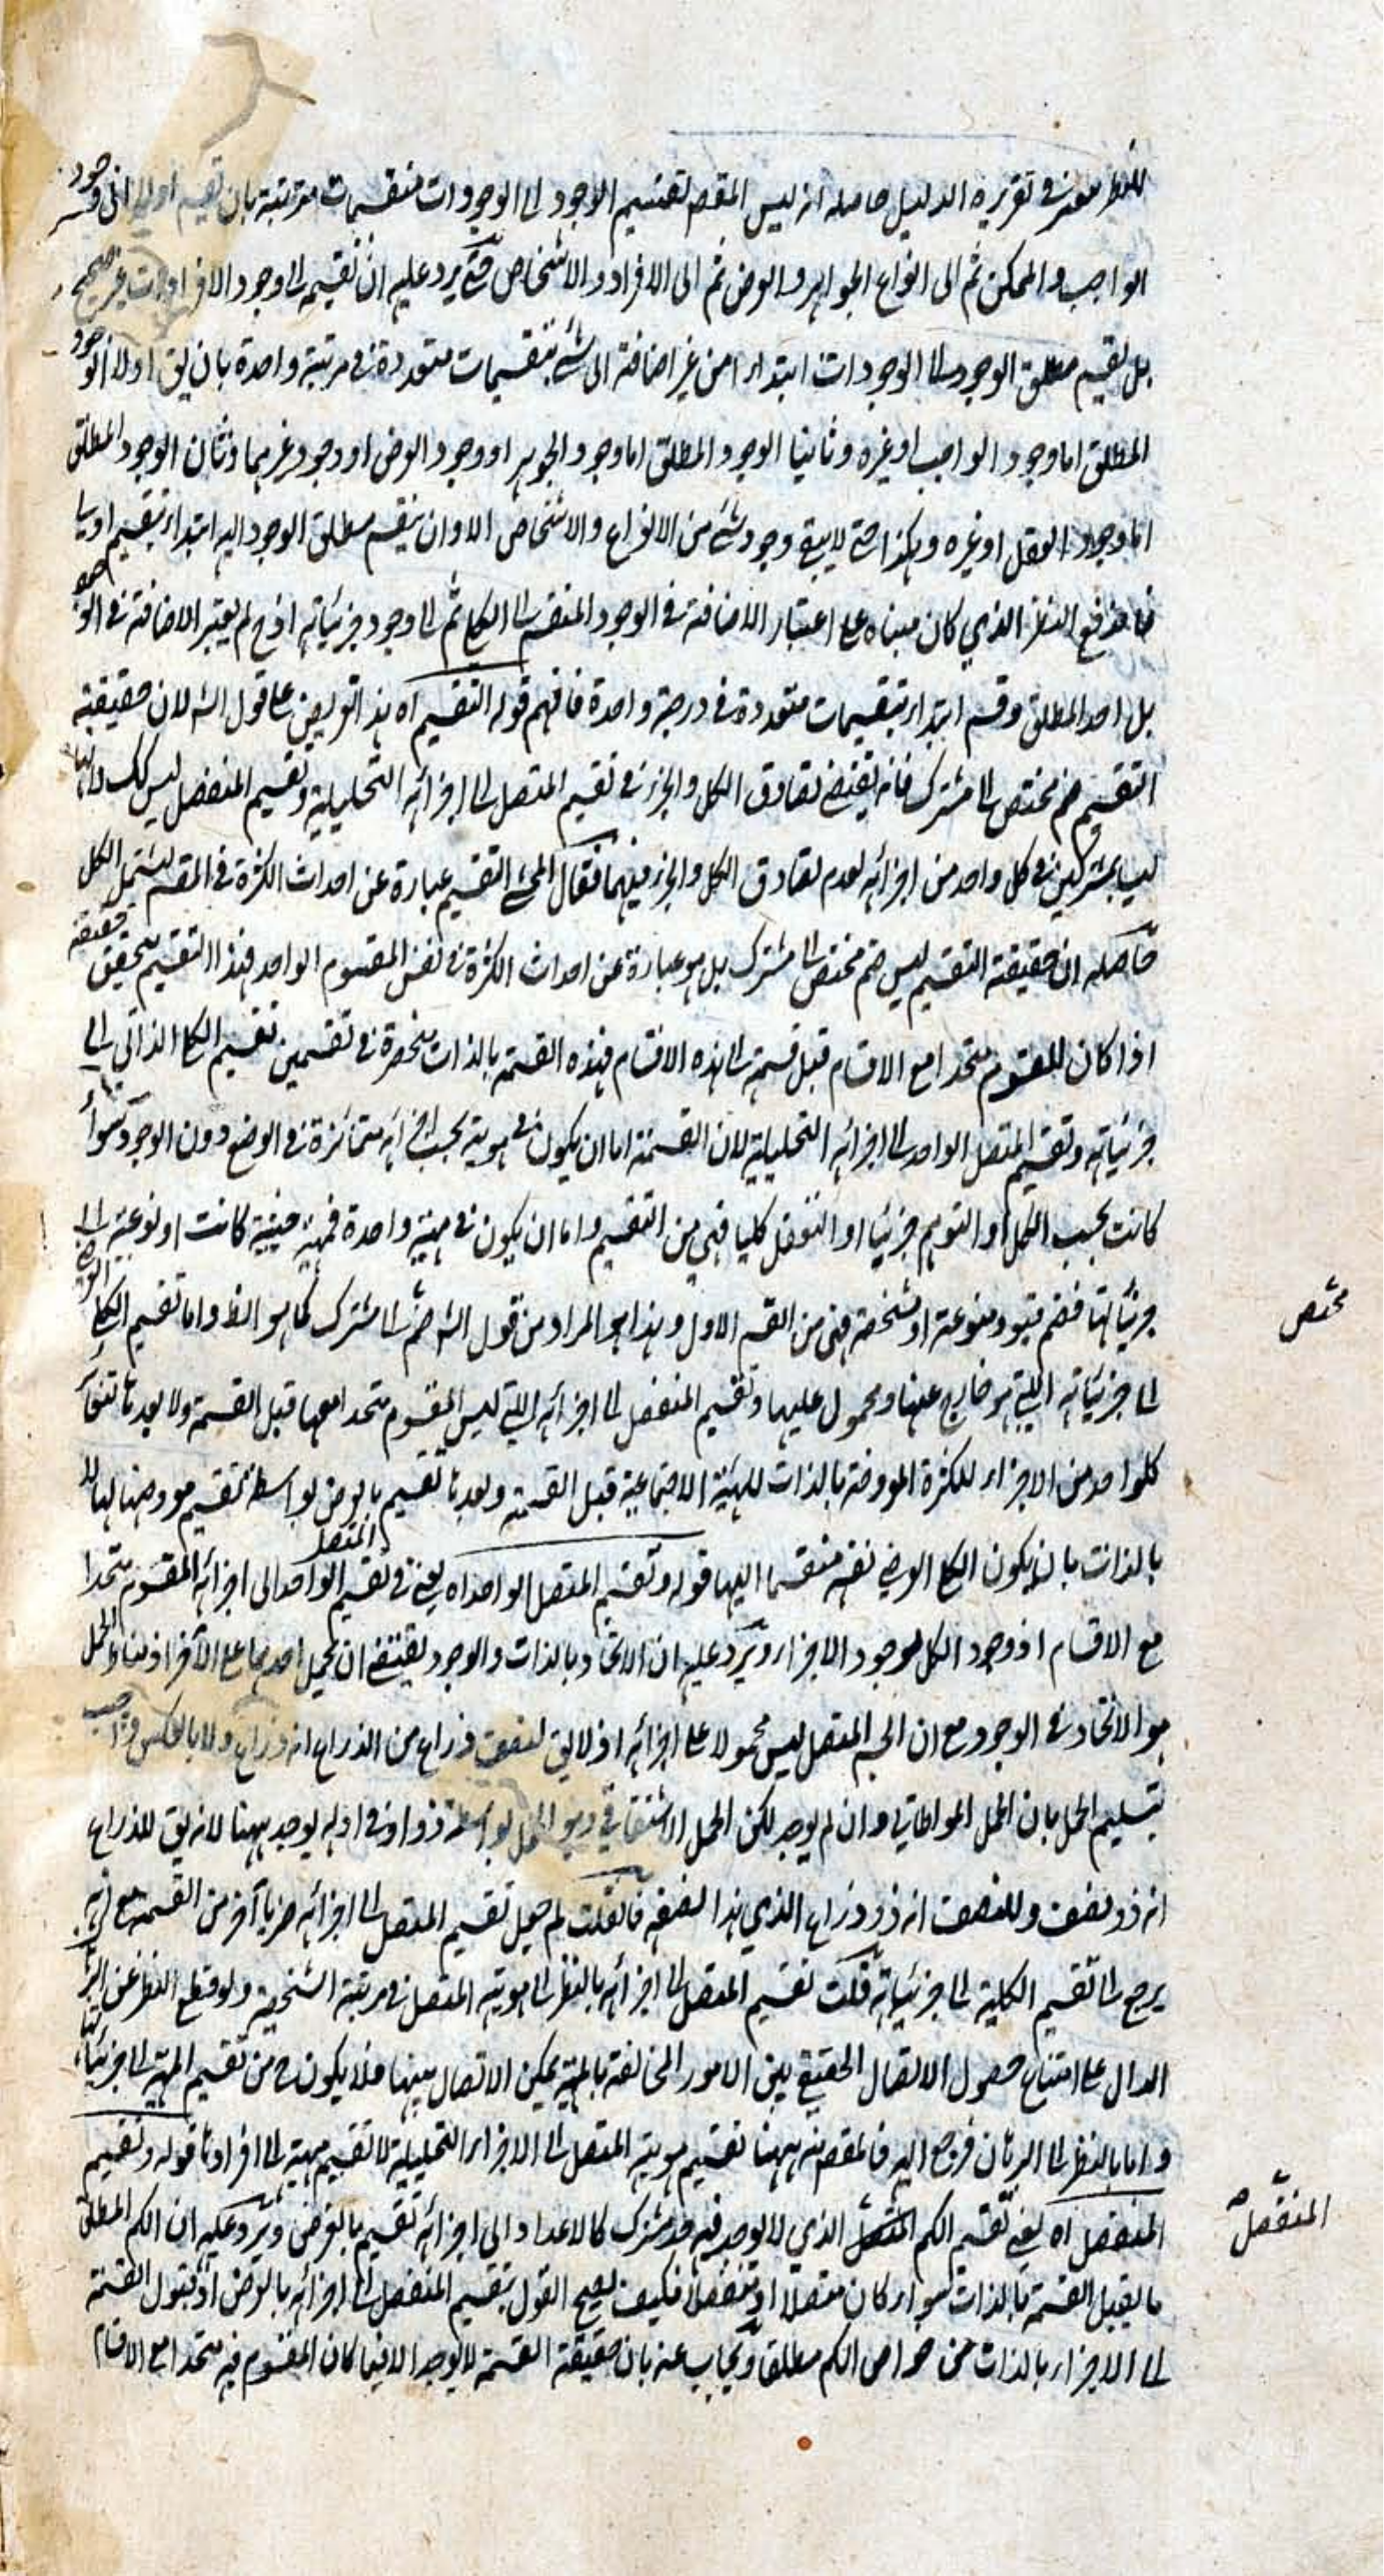 للنظر معترف تقريره الدليل حاصله انه ليس المقصم لتقسيم الوجود الى الوجودات منقسمات مترتبة بان تقسيم اولا الى وجود
الواجب والممكن ثم الى انواع الجواهر والعرض ثم الى الافراد والاشخاص حتى يرد عليه ان تقسيمه الى وجود الافراد غير صحيح
بل تقسيم مطلق الوجود الى الوجودات ابتداء من غير اضافة الى شئ بتقسيمات متعددة في مرتبة واحدة بان يق اولا الوجود
المطلق اما وجود الواجب او غيره وثانيا الوجود المطلق اما وجود الجوهر او وجود العرض او وجود غيرهما وثالثا ان الوجود المطلق
اما وجود العقل او غيره وهكذا حتى لا يبقى وجود شئ من الانواع والاشخاص الا وان ينقسم مطلق الوجود اليه ابتداء بتقسيم
فاندفع النظر الذي كان مبناه على اعتبار الاضافة في الوجود المنقسم الى الكلي ثم الى وجود جزئياته اذ ح لم يعتبر الاضافة في الوجود
بل اخذ المطلق وقسم ابتداء بتقسيمات متعددة في درجة واحدة فافهم قوله التقسيم اه هذا تعريض على قول الش لان حقيقة
التقسيم ضم مختص الى مشترك فانه يقتضي تصادق الكل والجزء في تقسيم المتصل الى اجزائه التحليلية وتقسيم المنفصل ليس كك
ليسا بمشتركين في كل واحد من اجزائه لعدم تصادق الكل والجزء فيهما فقال المحشي التقسيم عبارة عن احداث الكثرة في المقسم ليشتمل الكل
حاصله ان حقيقة التقسيم ليس ضم مختص الى مشترك بل هو عبارة عن احداث الكثرة في نفس المقسوم الواحد فهذا التقسيم يتحقق حقيقة
اذا كان المقسوم متحدا مع الاقسام قبل قسمته الى هذه الاقسام فهذه القسمة بالذات منحصرة في تقسمين تقسيم الكلي الذاتي الى
جزئياته وتقسيم المتصل الواحد الى اجزائه التحليلية لان القسمة اما ان يكون في هوية بحسب اجزائه متمائزة في الوضع دون الوجود سواء
كانت بحسب الكل او التوهم جزئيا او التعقل كليا فهي من التقسيم واما ان يكون في مهية واحدة فمهية جنسية كانت او نوعية الى
جزئياتها فضم قيود منوعة او مشخصة فهي من القسم الاول وهذا هو المراد من قول الش ضم الى مشترك كما هو الظ واما تقسيم الكلي العرضي
مختص
الى جزئياته التي هو خارج عنها ومحمول عليها وتقسيم المنفصل الى اجزائه التي ليس المقسوم متحدا معها قبل القسمة ولا بعدها
كل واحد من الاجزاء للكثرة المعروضة بالذات للهيئة الاجتماعية قبل القسمة وبعدها تقسيم بالعرض بواسطة تقسيم معروضها
بالذات بان يكون الكلي العرضي نفسه منقسما اليها قوله وتقسيم المتصل الواحد اه يعني في تقسيم المتصل الواحد الى اجزائه المقسوم متحدا
مع الاقسام اذ وجود الكل هو وجود الاجزاء ويرد عليه ان الاتحاد بالذات والوجود يقتضي ان يحمل احدهما على الآخر اذ مناط الحمل
هو الاتحاد في الوجود مع ان الجسم المتصل ليس محمولا على اجزائه اذ لا يق لنصف ذراع من الذراع انه ذراع ولا بالعكس واجيب
بتسليم الحمل بان الحمل المواطاتي وان لم يوجد لكن الحمل الاشتقاقي وهو الحمل بواسطة ذو او في او له يوجد ههنا لانه يق للذراع
انه ذو نصف وللنصف انه ذو ذراع الذي هذا نصفه فان قلت لم جعل تقسيم المتصل الى اجزائه ضربا آخر من القسمة مع انه
يرجع الى تقسيم الكلية الى جزئياته قلت تقسيم المتصل الى اجزائه بالنظر الى هوية المتصل في مرتبة الشخصية ولو قطع النظر عن البرهان
الدال على امتناع حصول الاتصال الحقيقي بين الامور المخالفة بالمهية يمكن الاتصال بينها فلا يكون ح من تقسيم المهية الى جزئياتها
واما بالنظر الى البرهان فرجع اليه فالمقصم منه ههنا تقسيم هوية المتصل الى الاجزاء التحليلية لا تقسيم مهية الى افرادها قوله وتقسيم
المنفصل اه يعني تقسيم الكم المتصل الذي لا يوجد فيه حد مشترك كالاعداد الى اجزائه تقسيم بالعرض ويرد عليه ان الكم المطلق
المنفصل صح
ما يقبل القسمة بالذات سواء كان متصلا او منفصلا فكيف يصح القول بتقسيم المنفصل الى اجزائه بالعرض اذ قبول القسمة
الى الاجزاء بالذات من خواص الكم مطلقا ويجاب عنه بان حقيقة القسمة لا يوجد الا فيما كان المقسوم فيه متحدا مع الاقسام